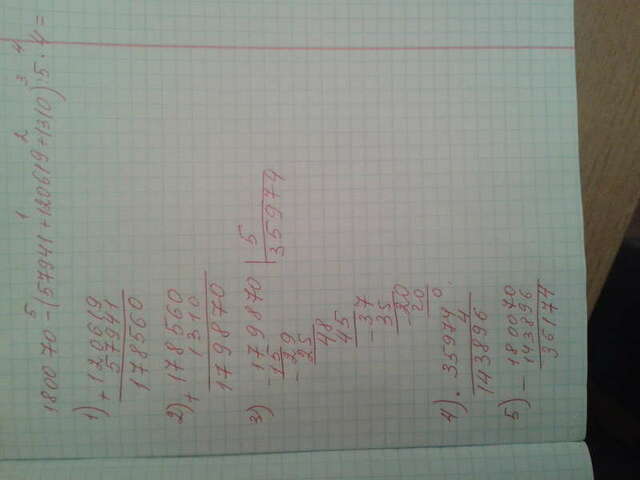 180070-(57941+120619+1310):5·4=
5 1 2 3 4
1) +120619
57941
178560
2) +178560
1310
179870
3) -179870 | 5
15 35974
-29
25
48
45
-37
35
-20
20
0
4) · 35974
4
143896
5) - 180070
143896
36174